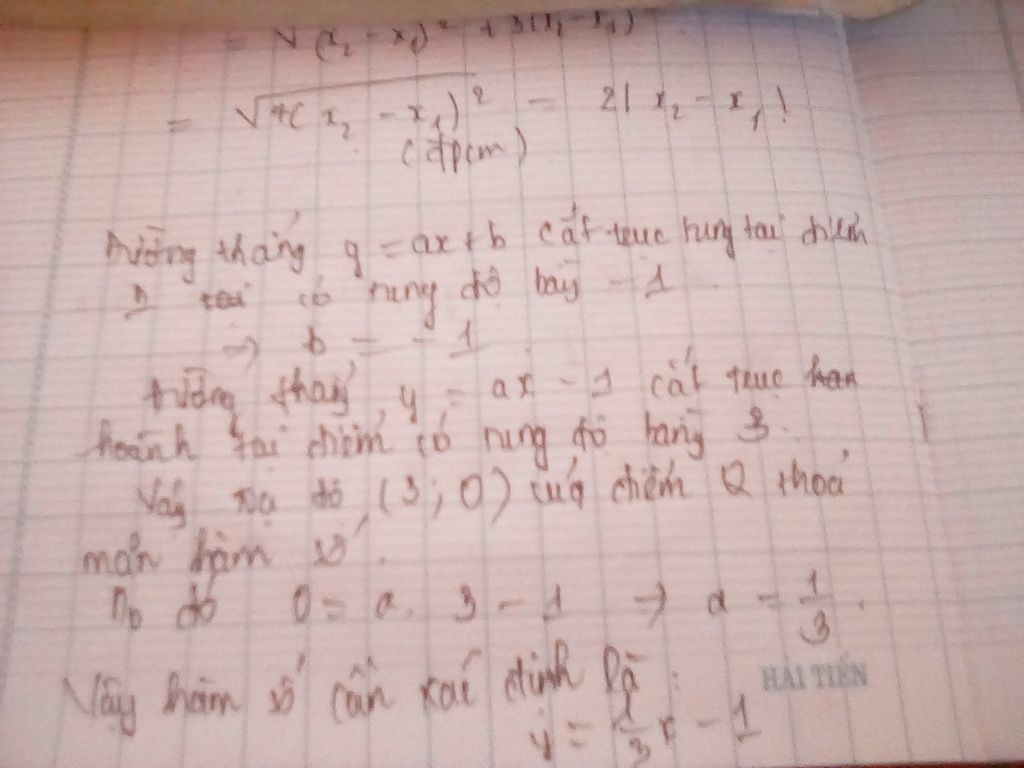 = √(x₂ - x₁)² + 3(x₂ - x₁)²
= √4(x₂ - x₁)² = 2|x₂ - x₁|
(đpcm)
Đường thẳng y = ax + b cắt trục tung tại điểm
có tung độ bằng -1
→ b = -1
Đường thẳng y = ax - 1 cắt trục
hoành tại điểm có tung độ bằng 3.
Vậy toạ độ (3; 0) của điểm Q thoả
mãn hàm số.
Do đó 0 = a. 3 - 1 → a = 1/3.
Vậy hàm số cần xác định là:
y = 1/3 x - 1
HẢI TIẾN